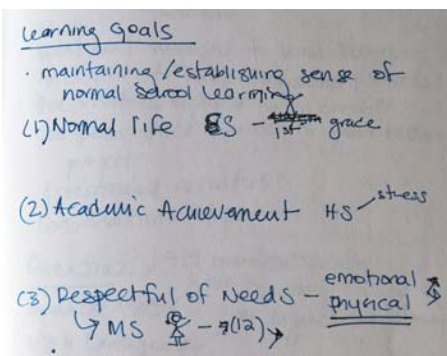 Learning Goals
· maintaining/establishing sense of
normal school learning
(1) Normal life ES - 1st grace
(2) Academic Achievement HS stress
(3) Respectful of Needs - emotional
physical
↳ MS - 7(12)